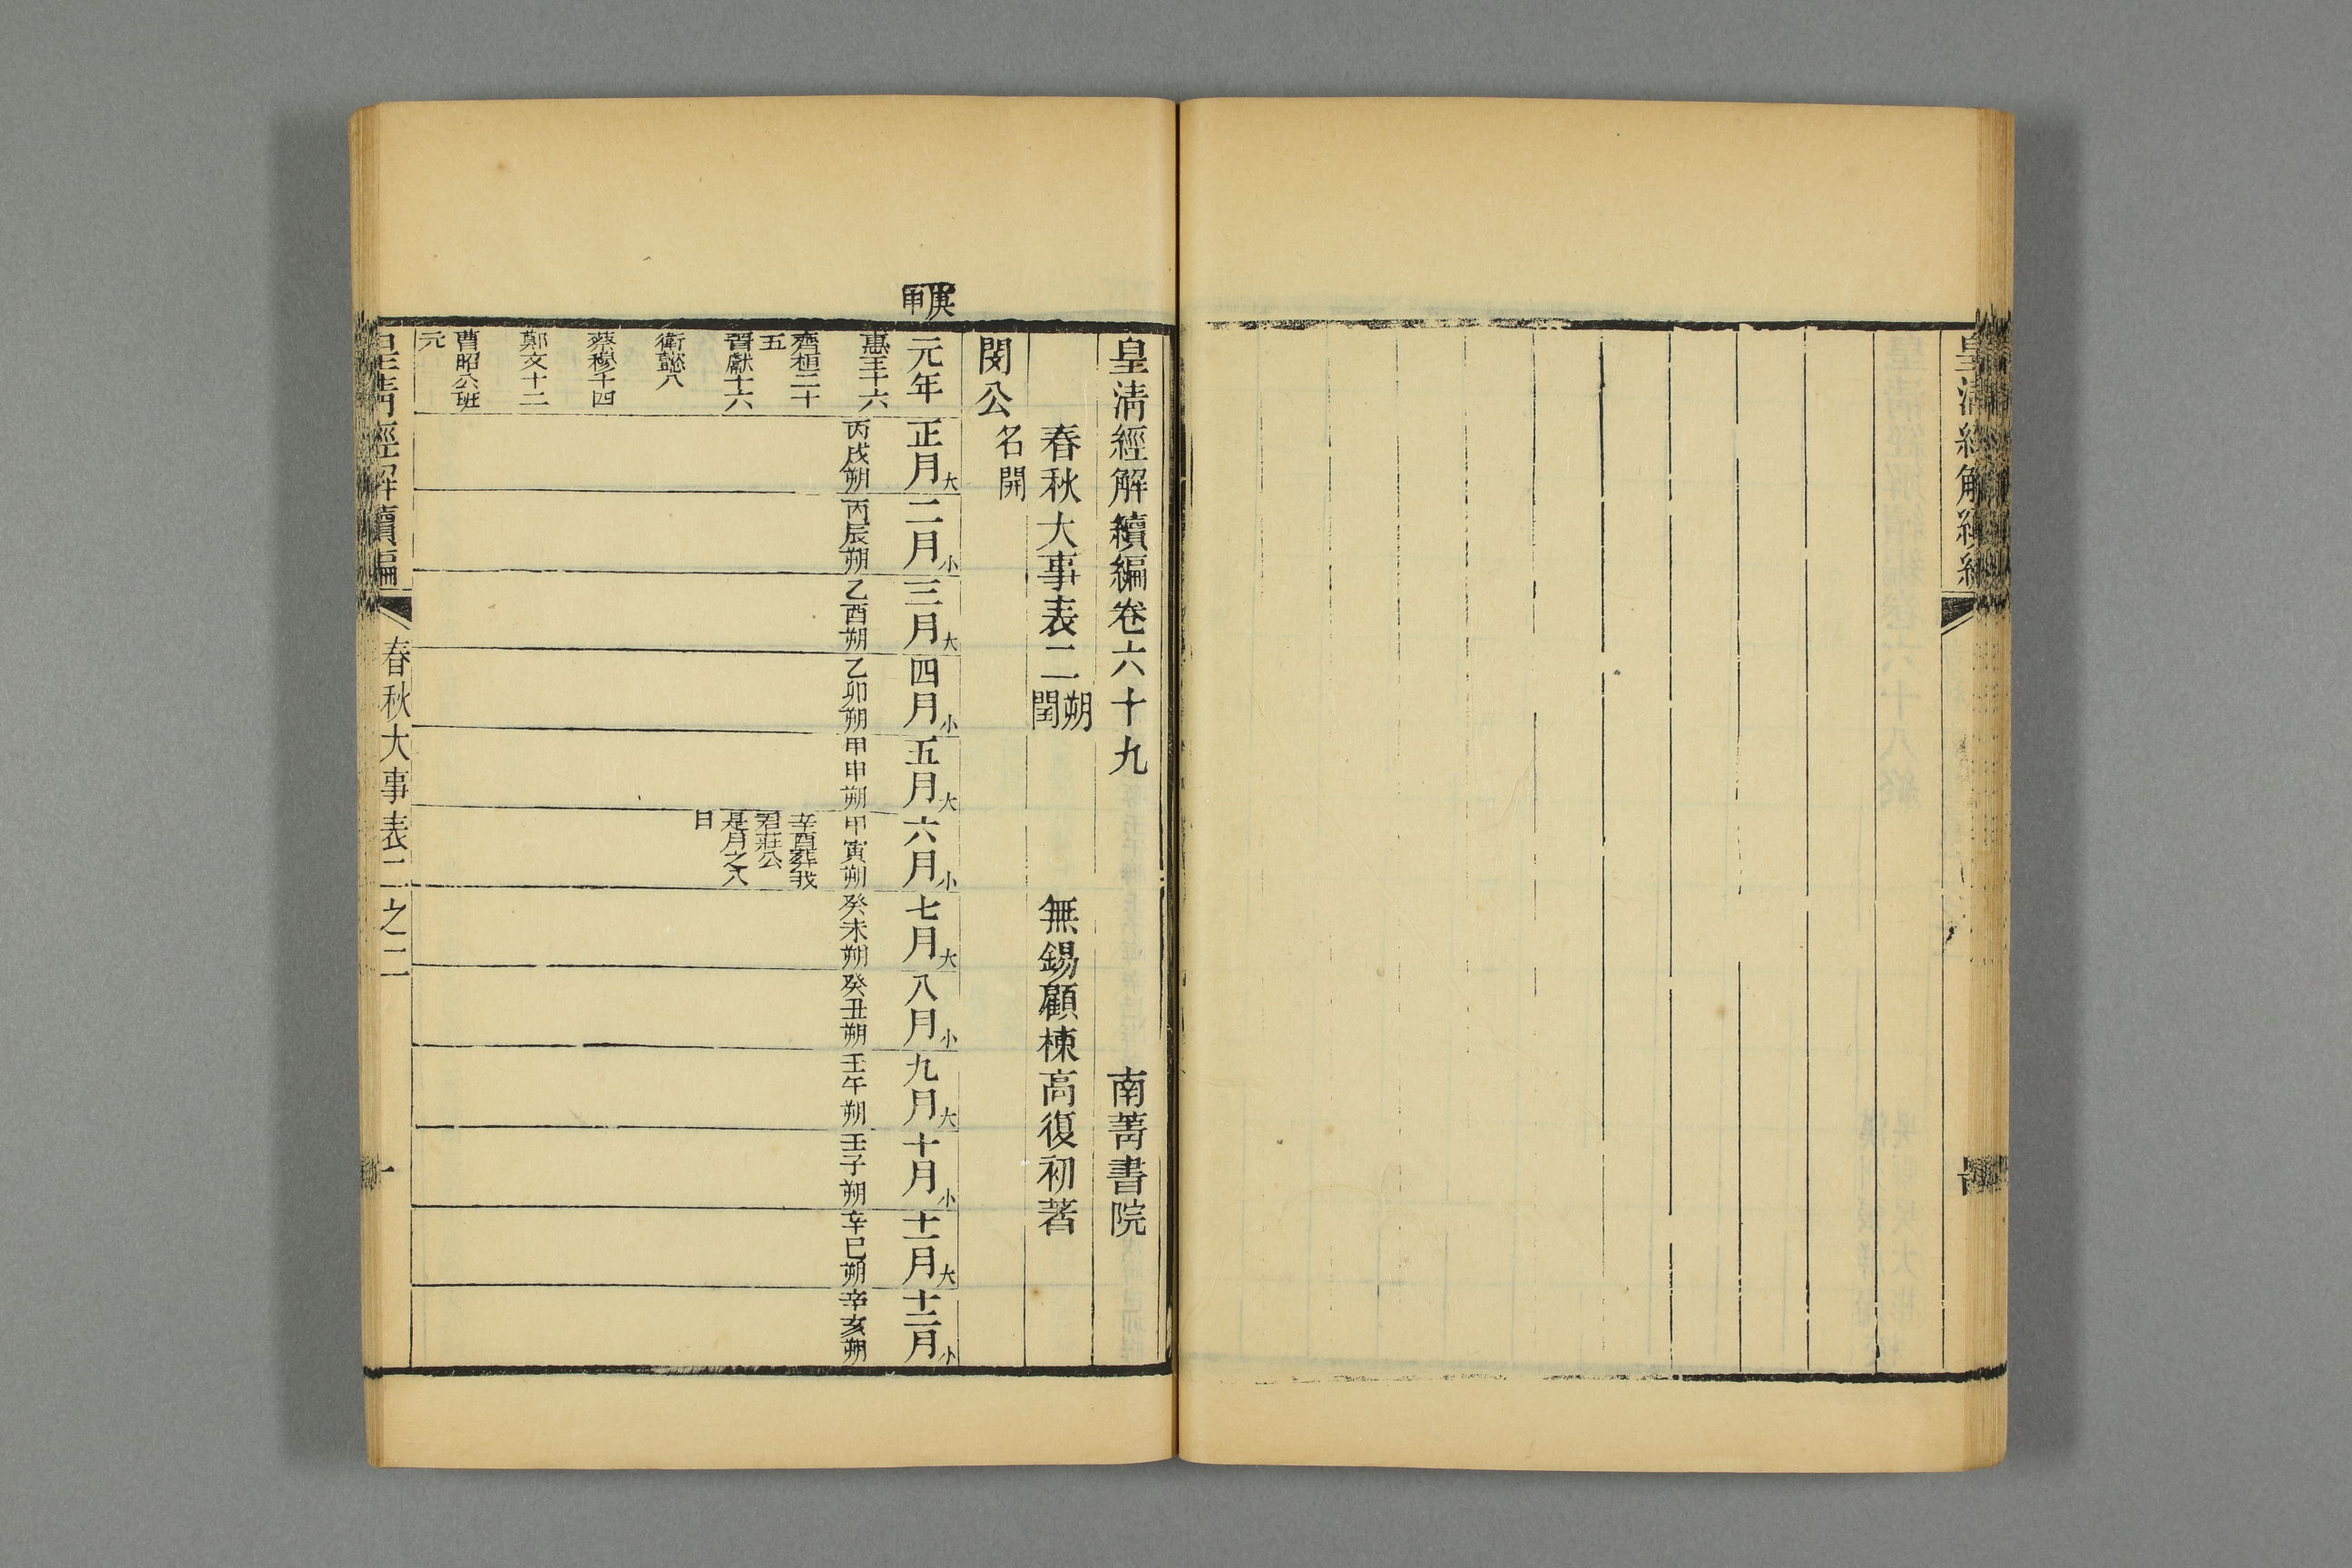 皇清經解續編
皇清經解續編卷六十九
南菁書院
春秋大事表二
朔閏
無錫顧棟高復初著
閔公
名開
庚申
元年
正月大
二月小
三月大
四月小
五月大
六月小
七月大
八月小
九月大
十月小
十一月大
十二月小
惠王十六
丙戌朔
丙辰朔
乙酉朔
乙卯朔
甲申朔
甲寅朔
癸未朔
癸丑朔
壬午朔
壬子朔
辛巳朔
辛亥朔
齊桓二十
五
晉獻十六
衛懿八
蔡穆十四
鄭文十二
曹昭公班
元
辛酉葬我
君莊公
是月之八
日
皇清經解續編
春秋大事表二之二
一